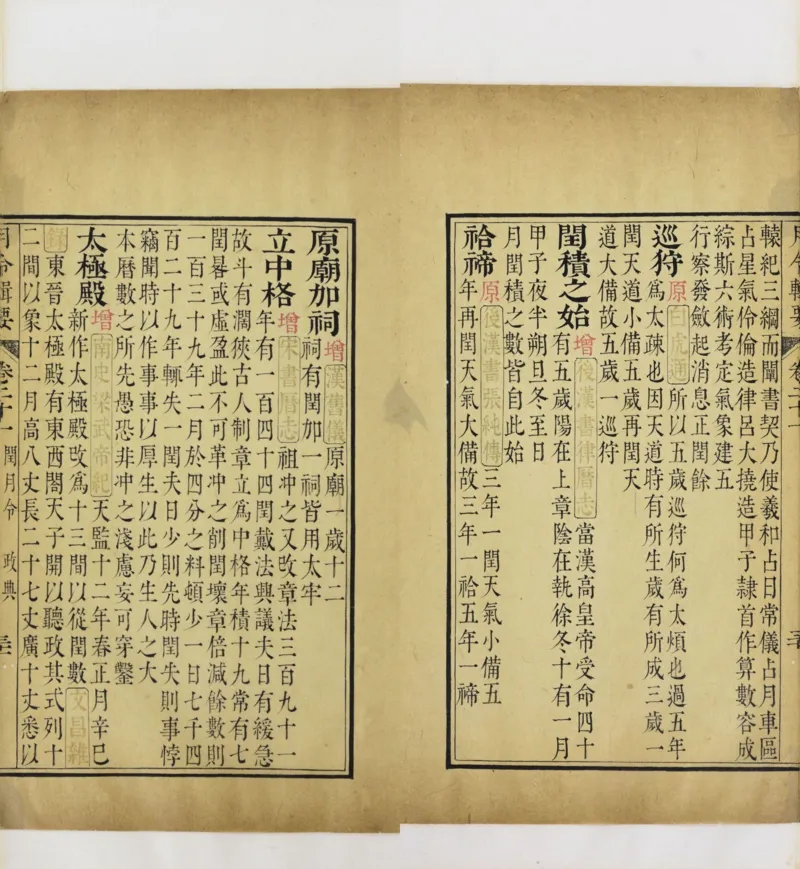 轅紀三綱而闡書契乃使羲和占日常儀占月車區
占星氣伶倫造律呂大撓造甲子隸首作算數容成
綜斯六術考定氣象建五
行察發斂起消息正閏餘
巡狩原白虎通所以五歲巡狩何爲太煩也過五年
爲太疎也因天道時有所生歲有所成三歲一
閏天道小備五歲再閏天
道大備故五歲一巡狩
閏積之始增後漢書律曆志當漢高皇帝受命四十
有五歲陽在上章陰在執徐冬十有一月
甲子夜半朔旦冬至日
月閏積之數皆自此始
祫禘原後漢書張純傳三年一閏天氣小備五
年再閏天氣大備故三年一祫五年一禘
原廟加祠增漢舊儀原廟一歲十二
祠有閏加一祠皆用太牢
立中格增宋書曆志祖冲之又攺章法三百九十一
年有一百四十四閏戴法興議夫日有緩急
故斗有濶狹古人制章立爲中格年積十九常有七
閏晷或虛盈此不可革冲之削閏壞章倍減餘數則
一百三十九年二月於四分之料頓少一日七千四
百二十九年輒失一閏夫日少則先時閏失則事悖
竊聞時以作事事以厚生以此乃生人之大
本曆數之所先愚恐非冲之淺慮妄可穿鑿
太極殿增南史梁武帝紀天監十二年春正月辛巳
新作太極殿攺爲十三間以從閏數文昌雜
錄東晉太極殿有東西閣天子開以聽政其式列十
二間以象十二月高八丈長二十七丈廣十丈悉以
月令輯要 卷二十一 閏月令 政典